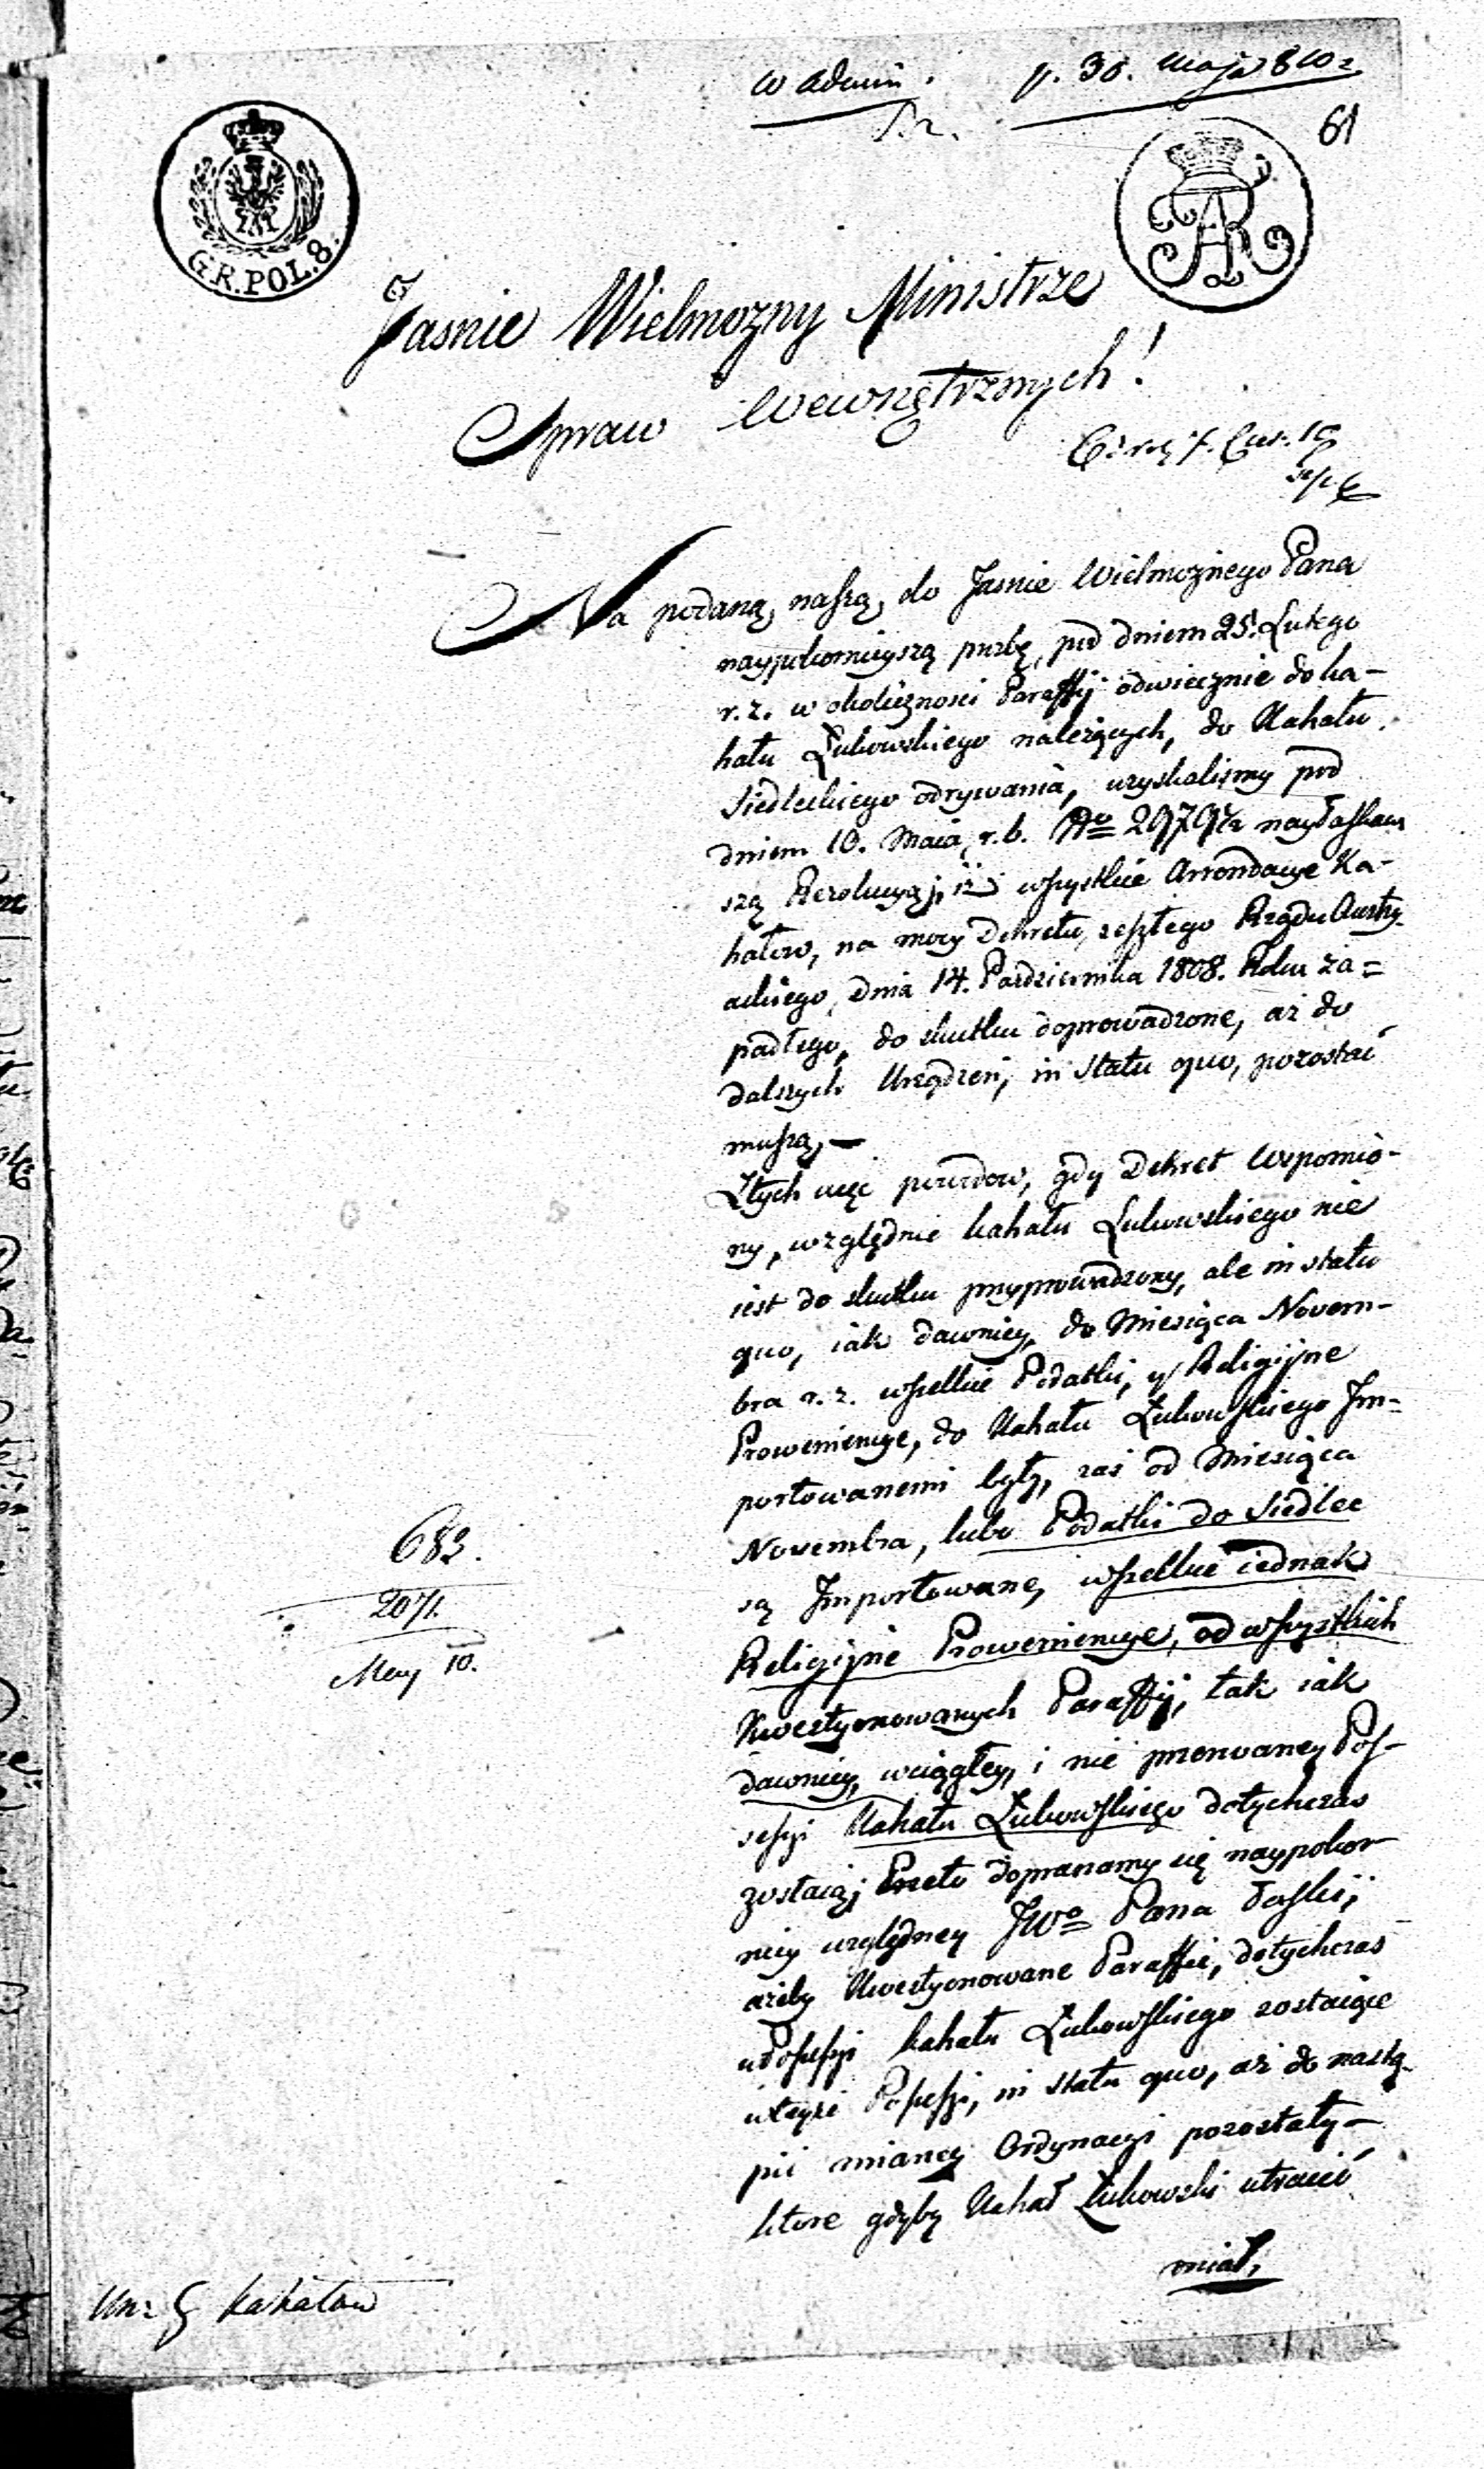 w Admin. p. 30. Maja 810 r.
61
G.R.POL.8.
Jasnie Wielmozny Ministrze
Spraw Wewnętrznych!
Na podaną naszą, do Jasnie Wielmoznego Pana
naypokornieyszą prozbę, pod dniem 25. Lutego
r. z. w okolicznosci Paraffij odwiecznie do ka-
hału Łukowskiego nalezących, do Kahału
Siedleckiego odrywania, uzyskalismy pod
dniem 10. Maia r. b. No 2979½ nayłaskaw
szą Rezolucyą, iz wszystkie Arrondacye Ka-
hałow, na mocy Dekretu, zeszłego Rządu Austry-
ackiego, dnia 14. Pazdziernika 1808. Roku za=
padłego, do skutku doprowadzone, az do
dalszych Urządzeń, in statu quo, pozostać
muszą, —
Z tych więc powodow, gdy Dekret Wspomio-
ny, względnie kahału Łukowskiego nie
iest do skutku przyprowadzony, ale in statu
quo, iak dawniey, do Miesiąca Novem-
bra r. z. wszelkie Podatki, y Religijne
Proweniencye, do Kahału Łukowskiego Jm=
portowanemi były, zaś od Miesiąca
Novembra, lubo Podatki do Siedlec
są Jmportowane, wszelkie iednak
Religijne Proweniencye, od wszystkich
Kwestyonowanych Paraffij, tak iak
dawniey, w ciągłey, i nie przerwaney Pos-
sessyi Kahału Łukowskiego dotychczas
zostaią; Przeto dopraszamy się naypokor
niey względney JWo Pana Łaski,
azeby Kwestyonowane Paraffie, dotychczas
w Possessyi kahału Łukowskiego zostaiące
w teyze Possessyi, in statu quo, az do nastą-
pić mianey Ordynacyi pozostały —
ktore gdyby Kahał Łukowski utracić
miał,
683.
2071.
May 10.
kahałow